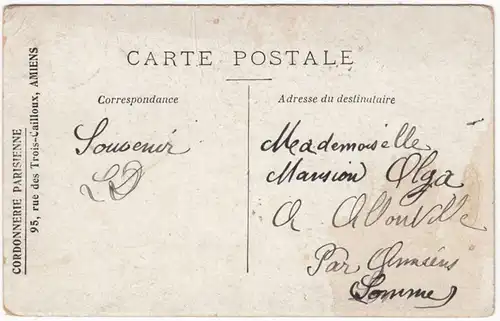 CORDONNERIE PARISIENNE
95, rue des Trois-Cailloux, AMIENS
CARTE POSTALE
Correspondance
Adresse du destinataire
Souvenir
LD
Mademoiselle
Mansion Olga
A Allonville
Par Amiens
(Somme)